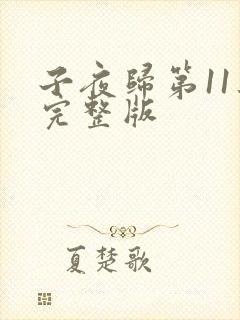 子夜歸第11
完整版
夏楚歌